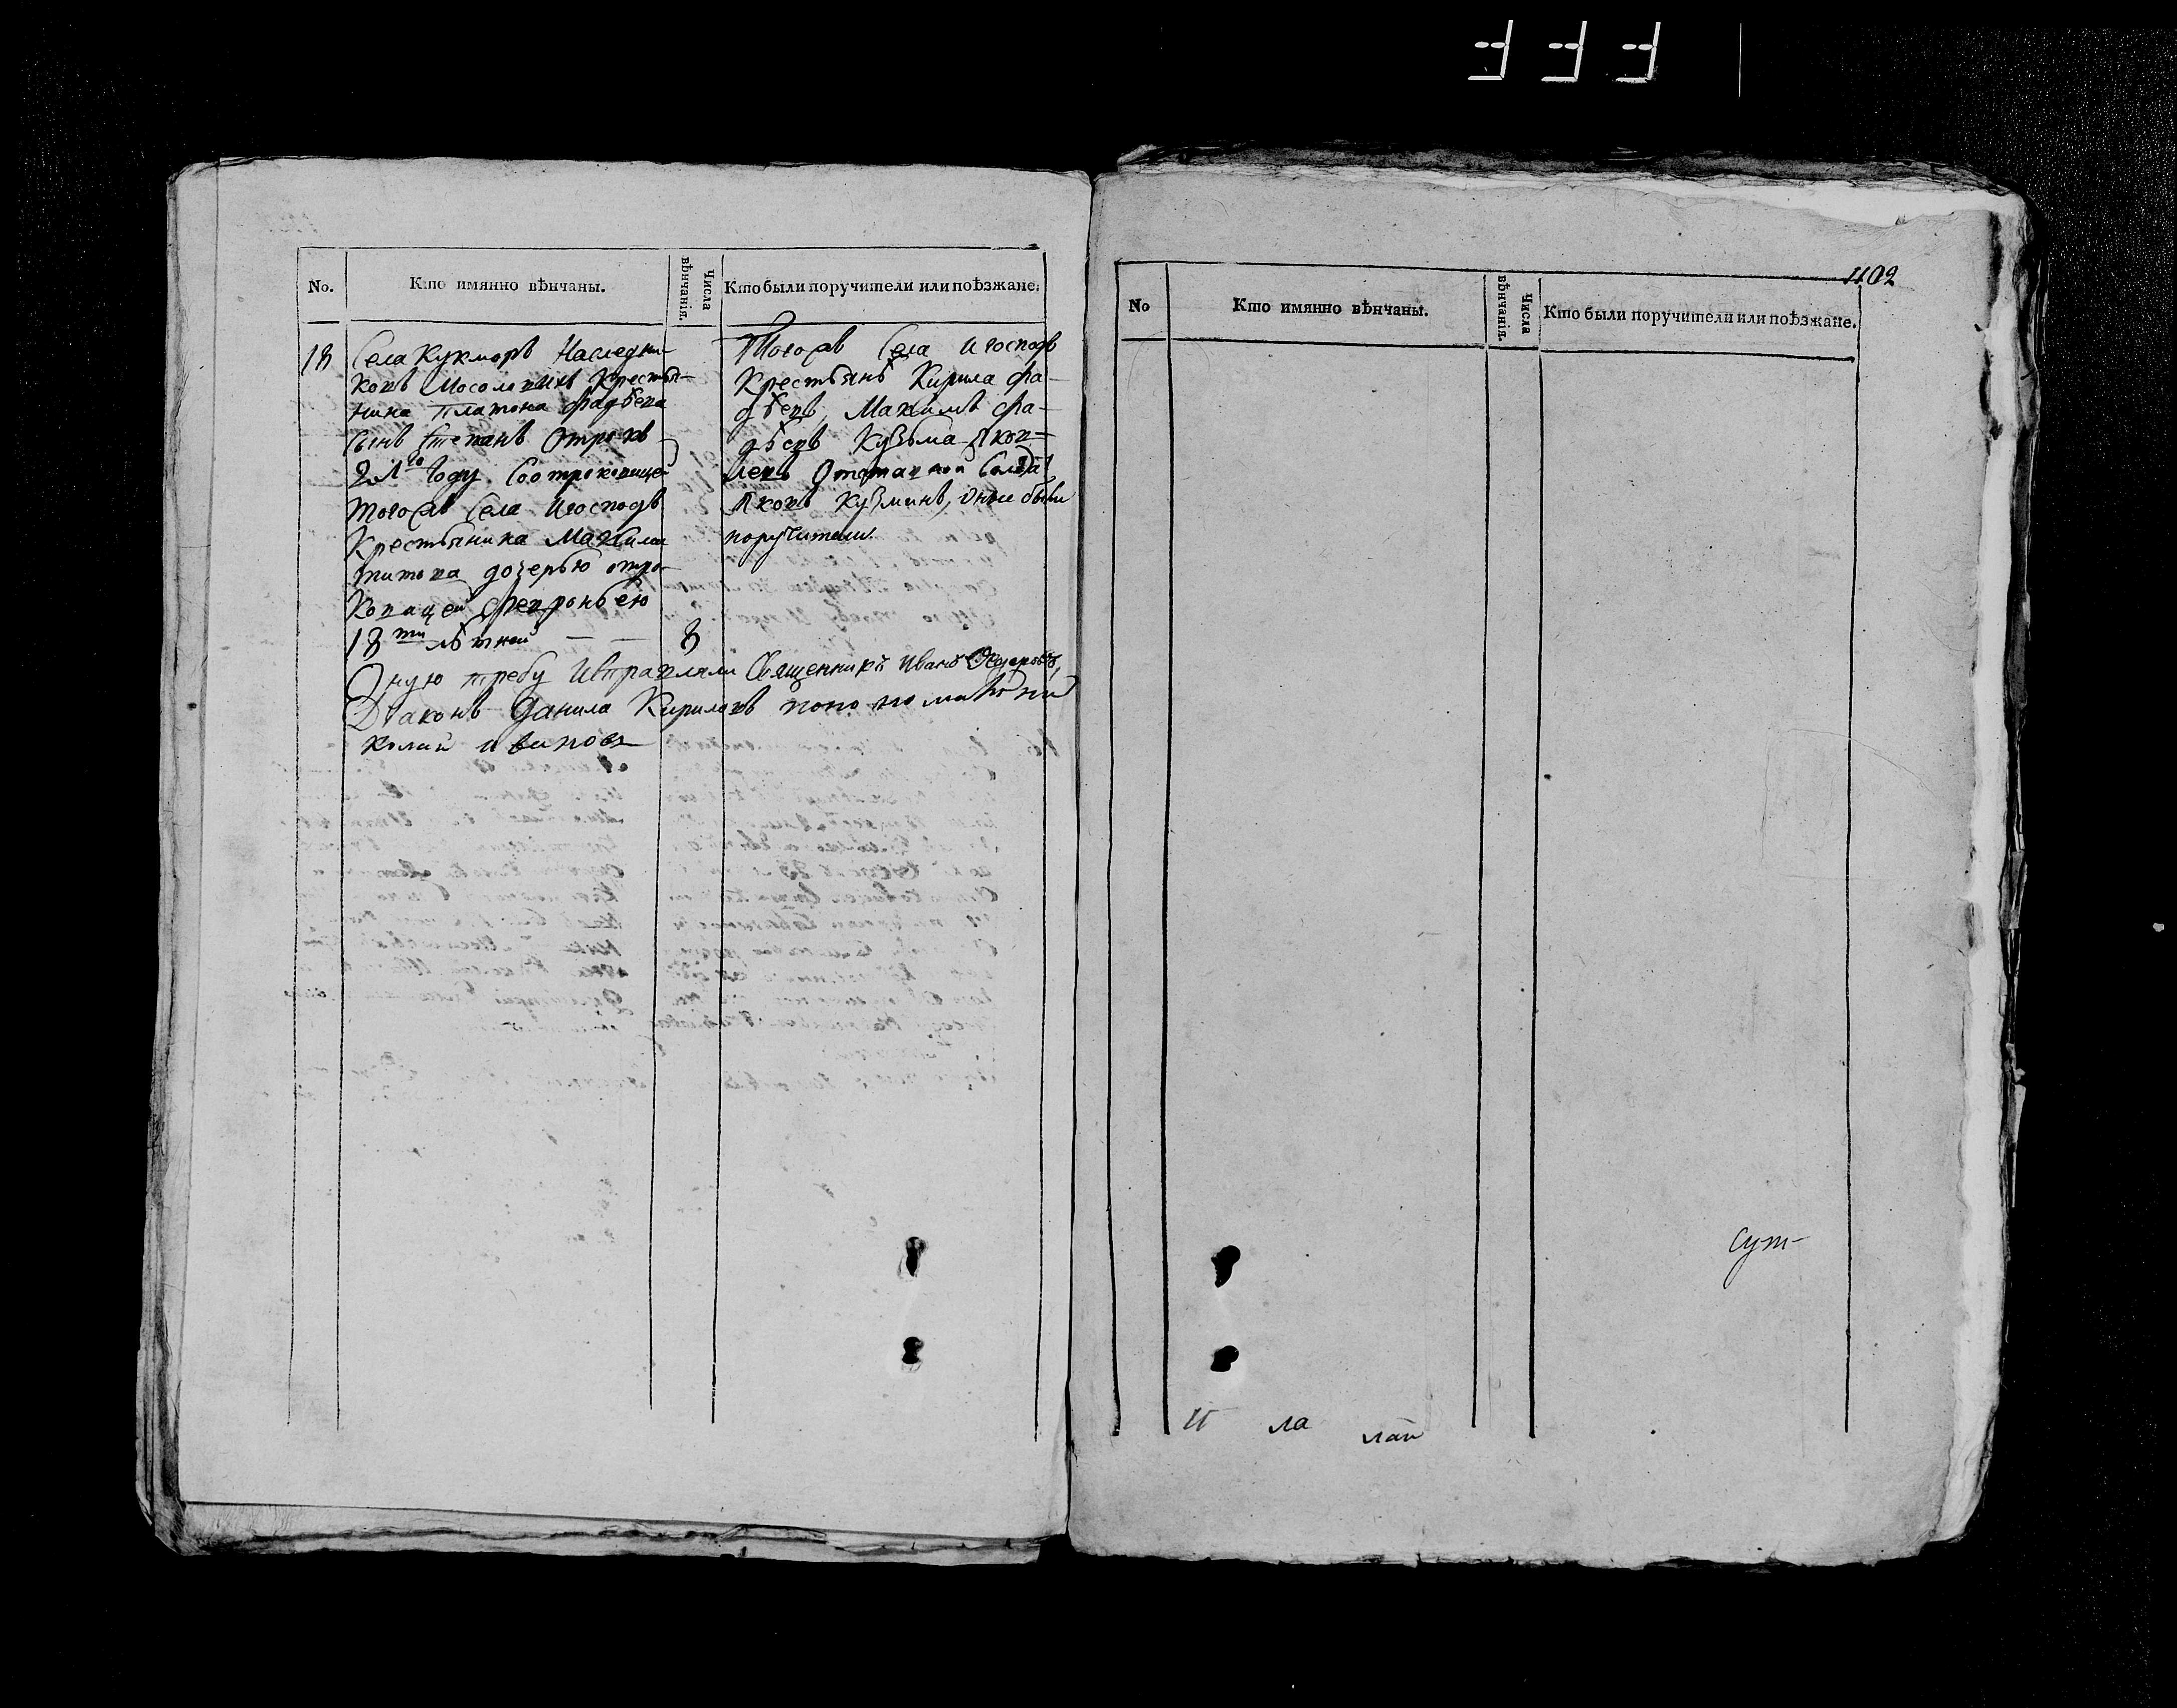 No.
Кто имянно вѣнчаны.
Числа вѣнчанія.
Кто были поручители или поѣзжане.
18
Села Кукморъ Наследни-
ковъ Мосоловыхъ Крестья-
нина Платона Фадѣева
Сынъ Степанъ Отрокъ
21 го Году Соотроковицей
тогожъ Села Игосподъ
Крестьянина Максима
Титова дочерью отро-
ковицей Февроньею
18 ти лѣтней — — 8
Тогожъ Села Игосподъ
Крестьянъ Кирила Фа-
дѣевъ, Максимъ Фа-
дѣевъ Кузьма Яков-
левъ Отставной Солдатъ
Яковъ Кузминъ, оные были
поручители.
Оную требу Исправляли Священникъ Иванъ
Діаконъ Данила Кириловъ пономарь Ни
колай Ивановъ
1102
No
Кто имянно вѣнчаны.
Числа вѣнчанія.
Кто были поручители или поѣзжане.
сут-
ла
лай